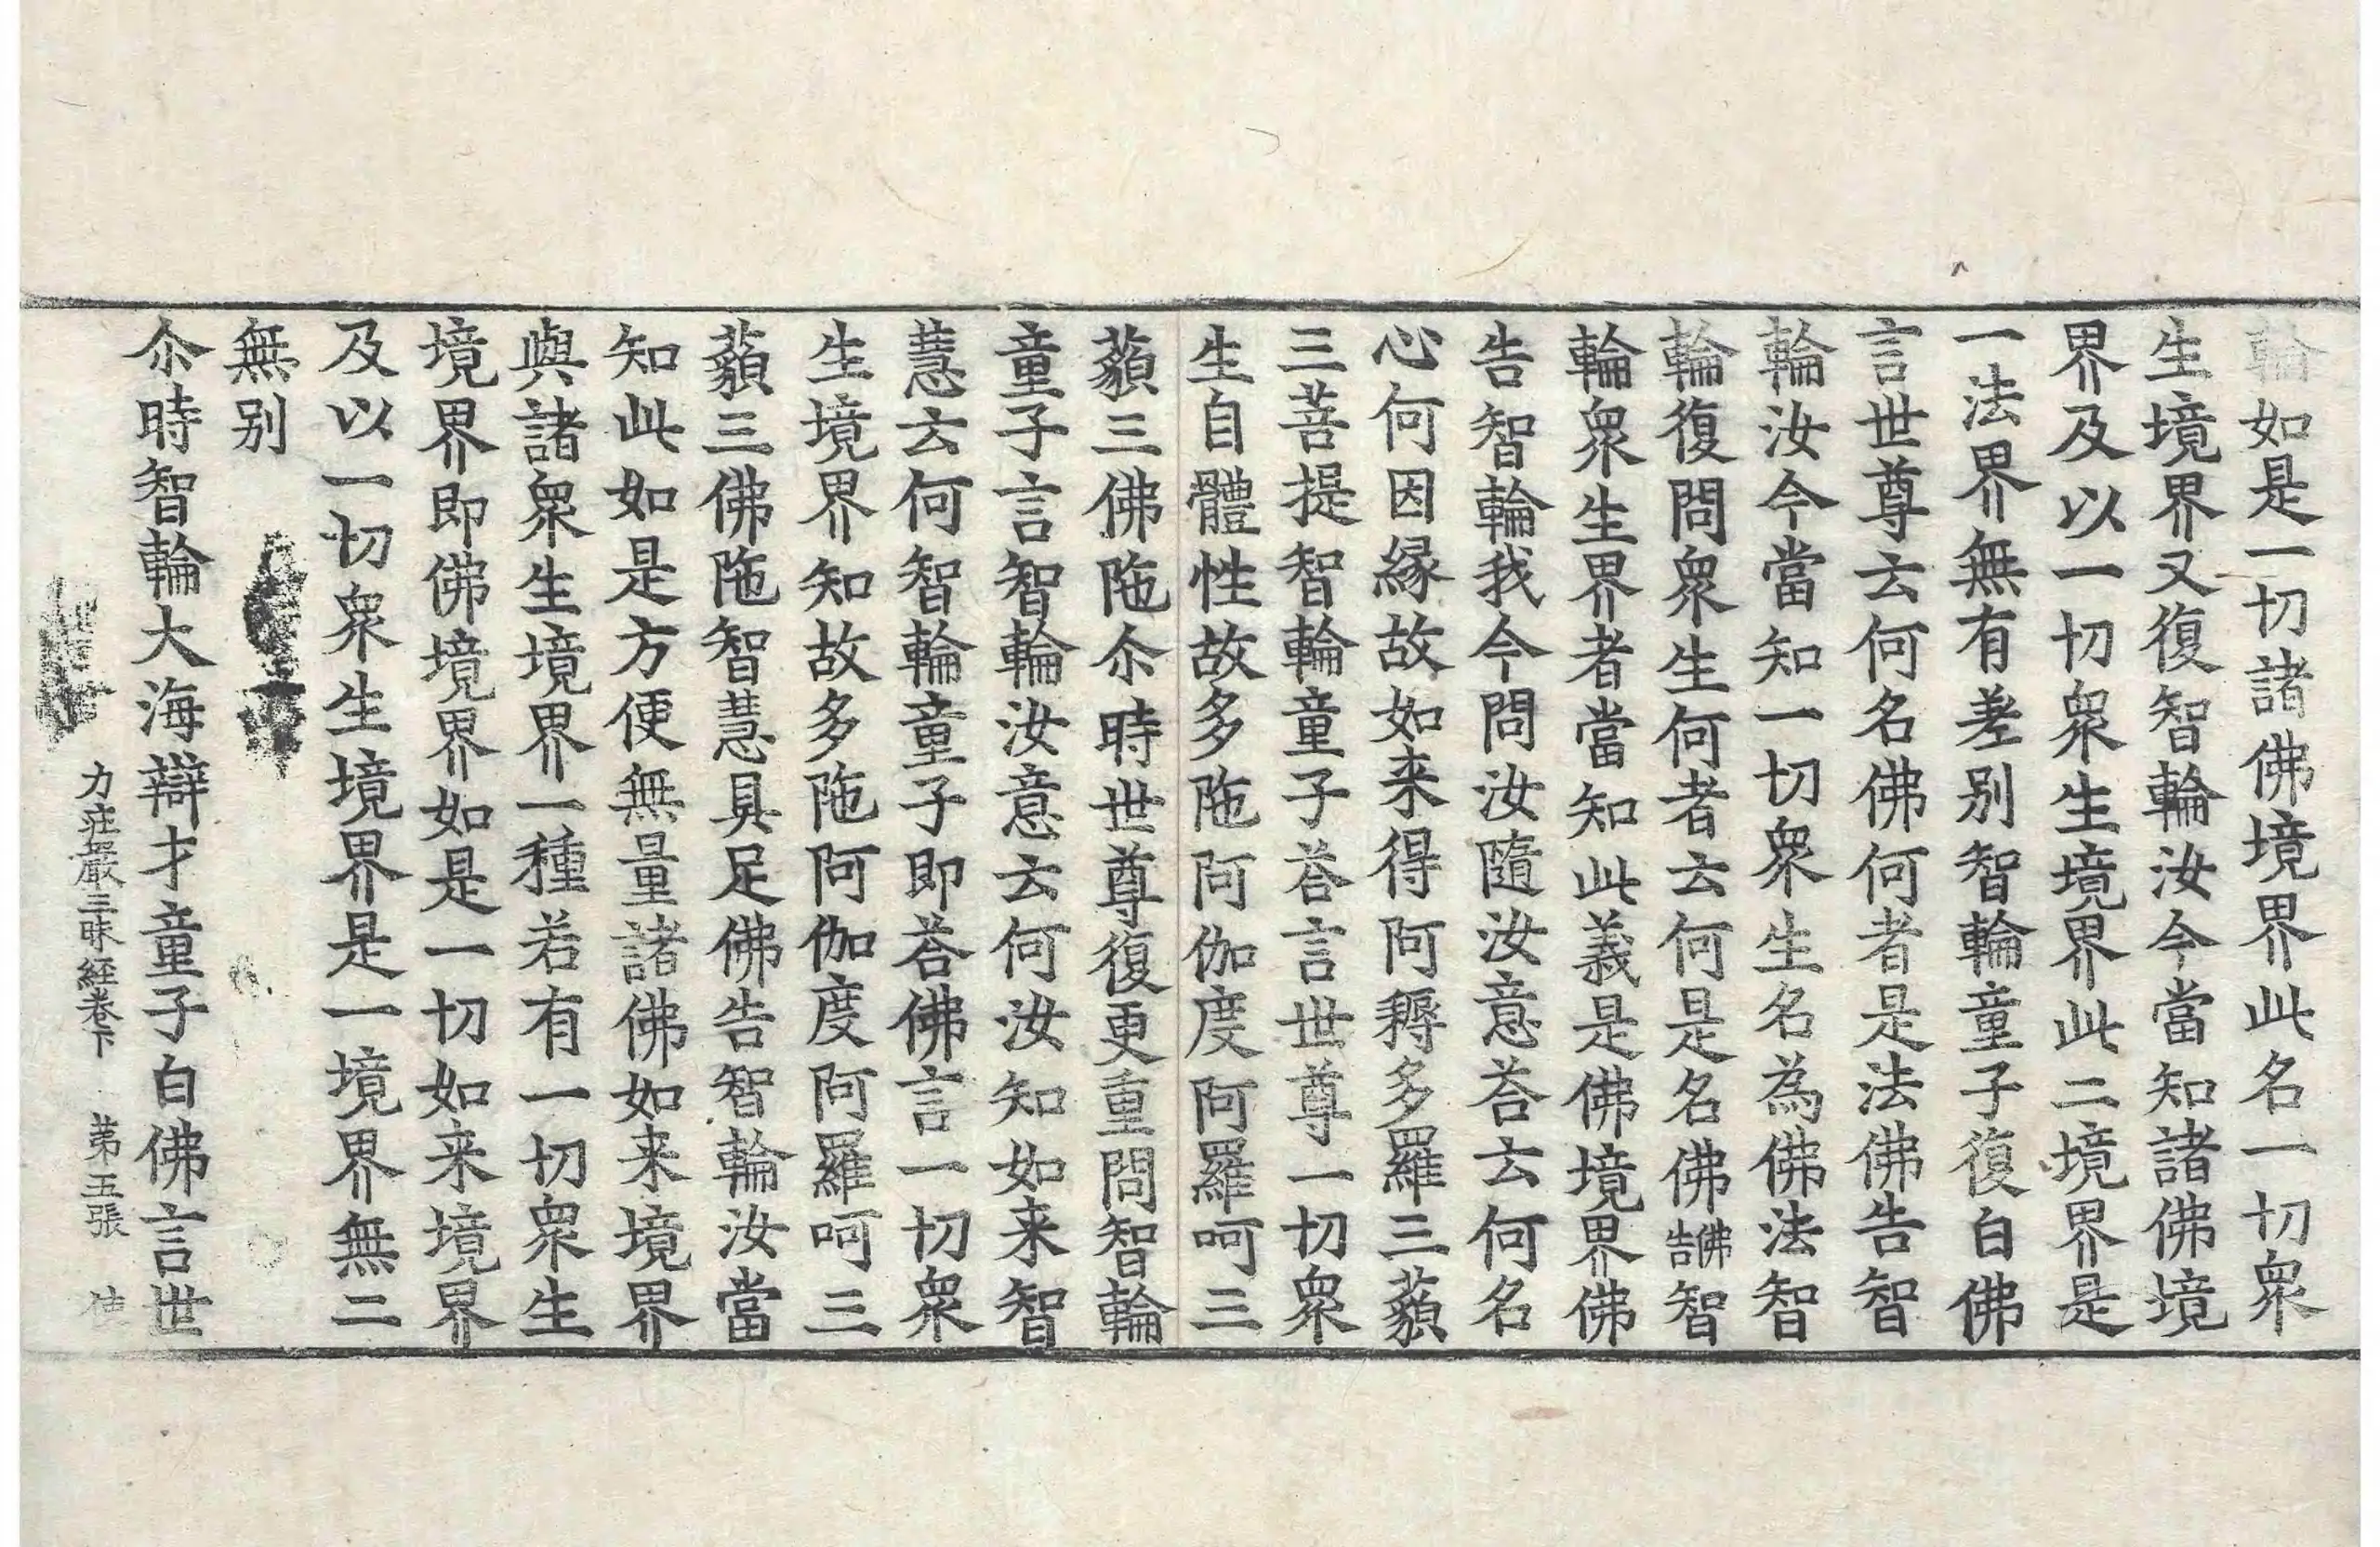 輪如是一切諸佛境界此名一切衆
生境界又復智輪汝今當知諸佛境
界及以一切衆生境界此二境界是
一法界無有差别智輪童子復白佛
言世尊云何名佛何者是法佛告智
輪汝今當知一切衆生名為佛法智
輪復問衆生何者云何是名佛佛告智
輪衆生界者當知此義是佛境界佛
告智輪我今問汝隨汝意荅云何名
心何因緣故如来得阿耨多羅三藐
三菩提智輪童子荅言世尊一切衆
生自體性故多陁阿伽度阿羅呵三
藐三佛陁尒時世尊復更重問智輪
童子言智輪汝意云何汝知如来智
慧云何智輪童子即荅佛言一切衆
生境界知故多陁阿伽度阿羅呵三
藐三佛陁智慧具足佛告智輪汝當
知此如是方便無量諸佛如来境界
與諸衆生境界一種若有一切衆生
境界即佛境界如是一切如来境界
及以一切衆生境界是一境界無二
無别
尒時智輪大海辯才童子白佛言世
力莊嚴三昧經卷下 第五張 使